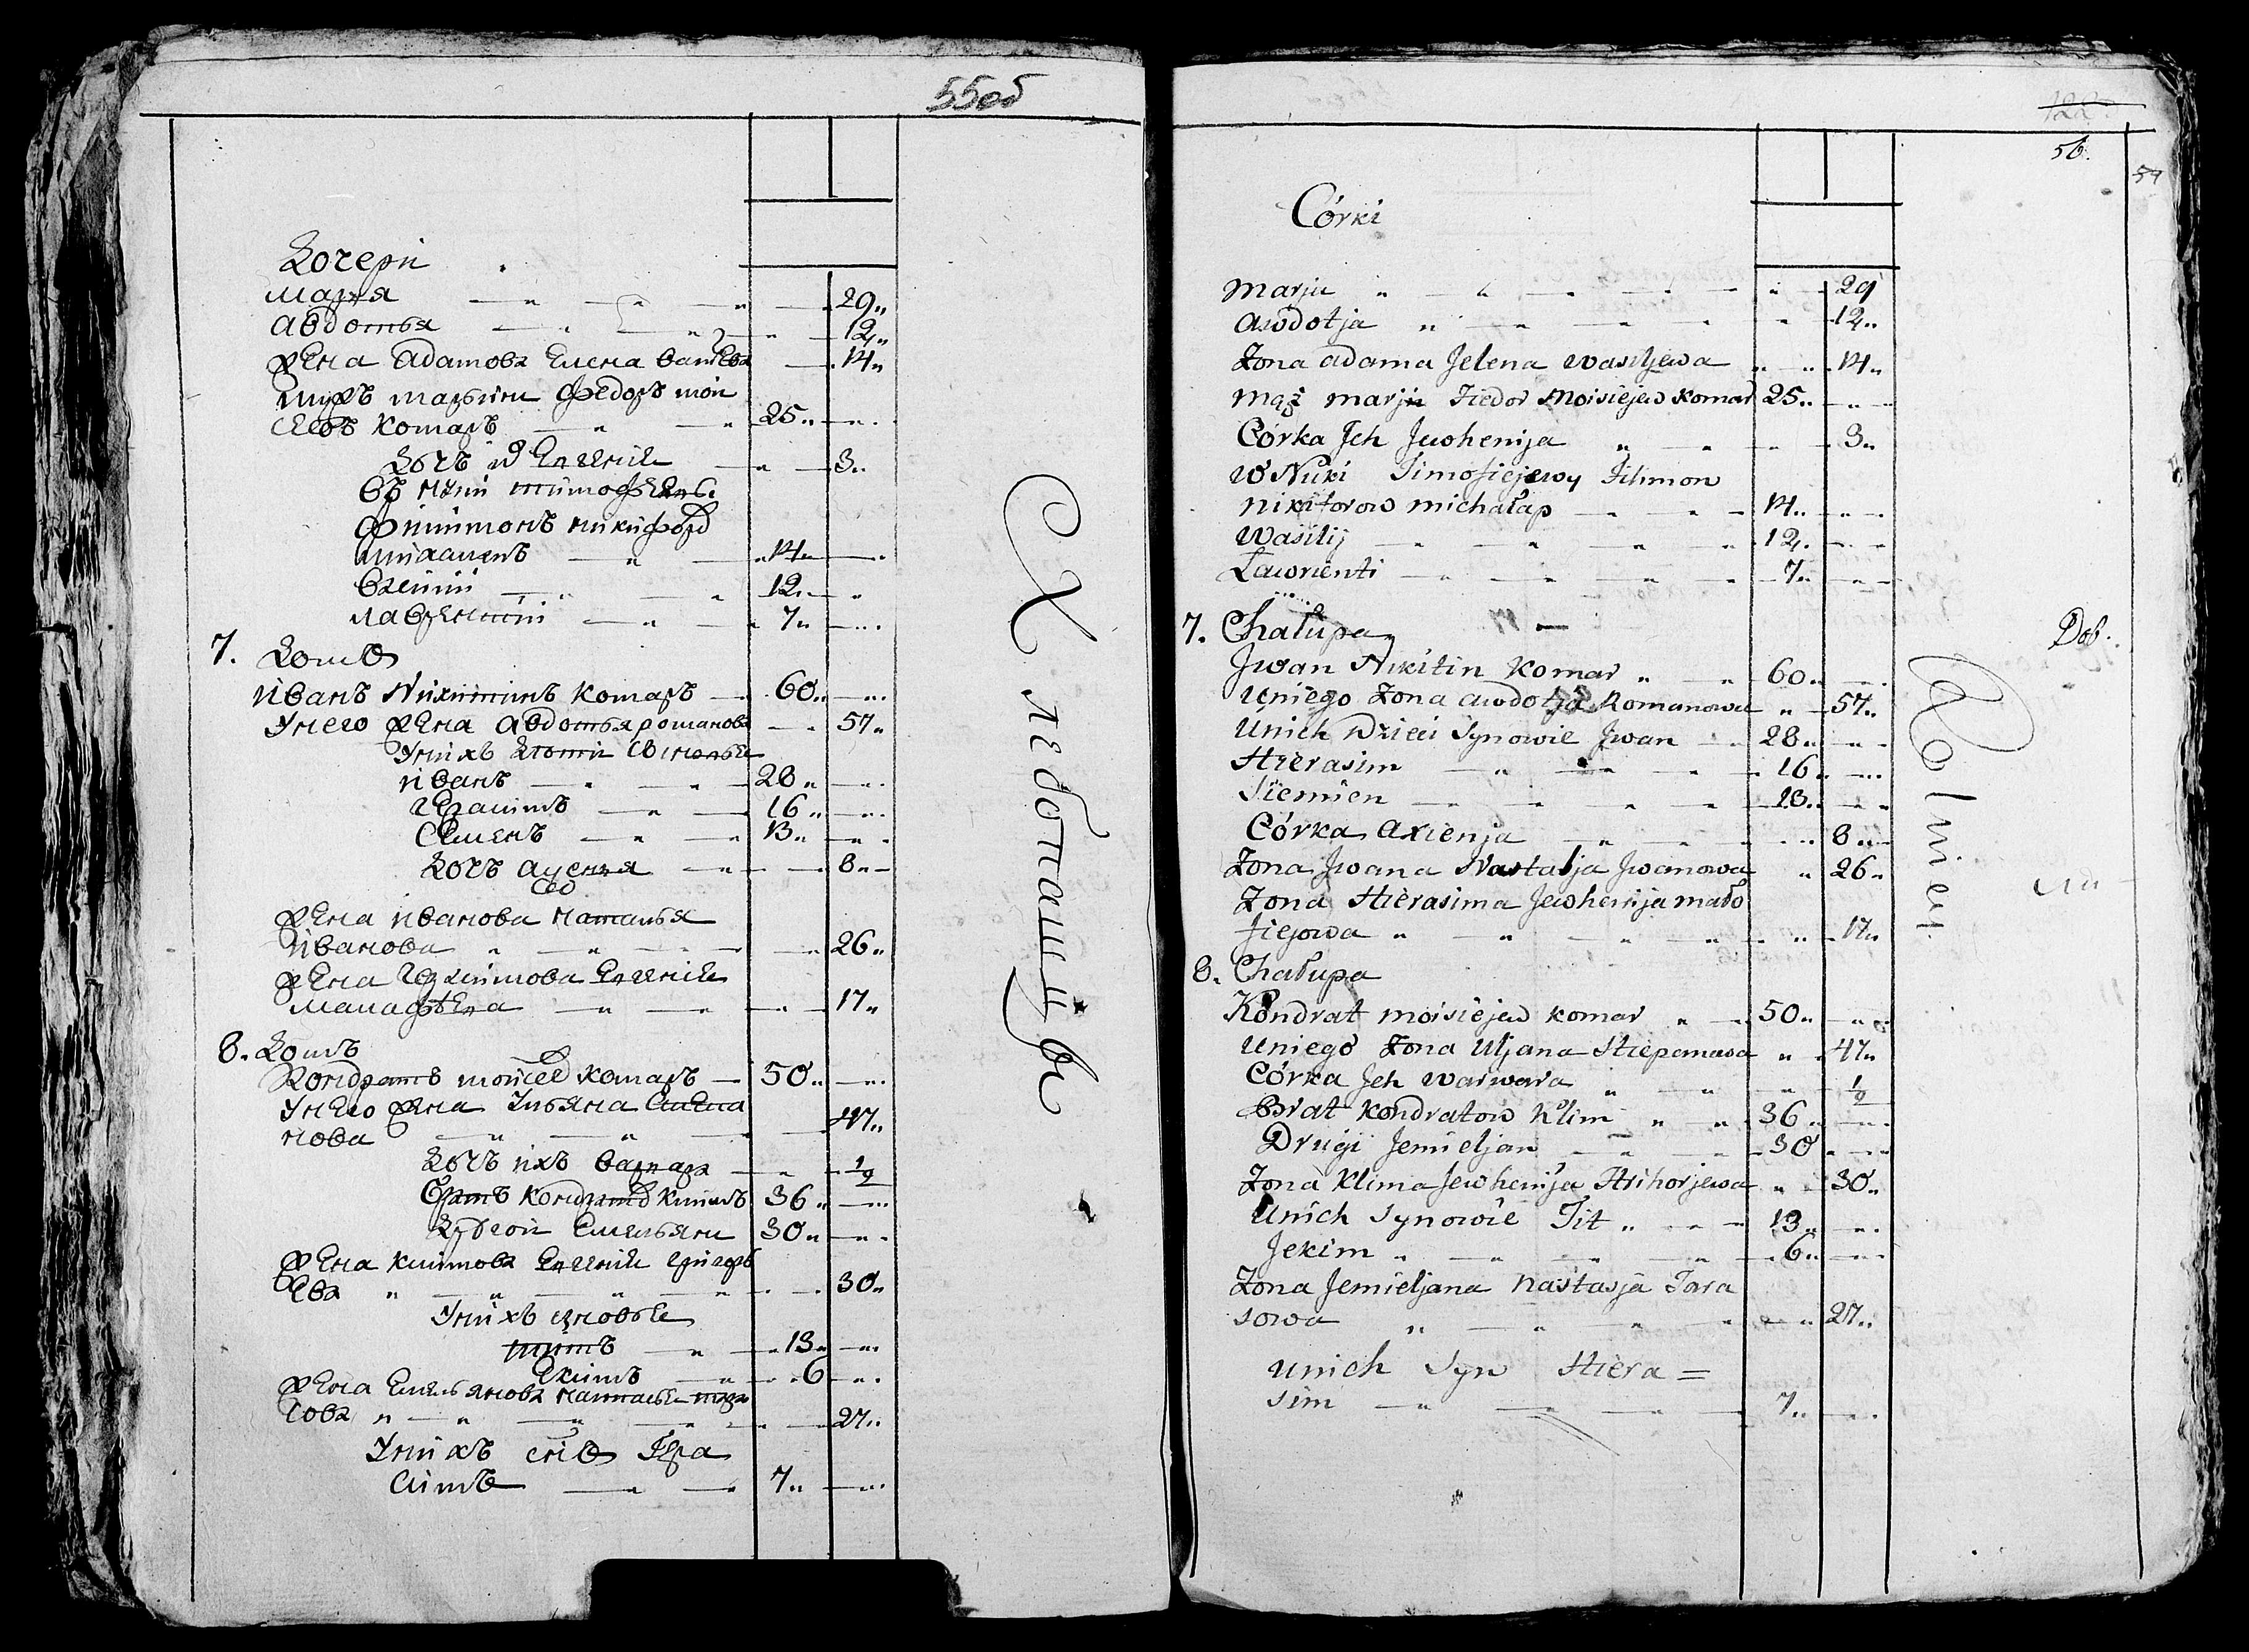 55об
Дочери
Марья — 29
Авдотья — 12
Жена Адамова Елена Васильева — 14
Мужъ Марьинъ Федоръ Мои
сеевъ Комаръ — 25
Дочь их Евгения — 3
Внуки Тимофеевы
Филимонъ Никифоров
Михаилъ — 14
Василий — 12
Лаврентий — 7
7. Домъ
Иванъ Никитинъ Комаръ — 60
У него жена Авдотья Романова — 57
У нихъ дети сыновья
Иванъ — 28
Герасимъ — 16
Семенъ — 13
Дочь Аксенья — 8
Жена Иванова Настасья
Иванова — 26
Жена Герасимова Евгения
Малафеева — 17
8. Домъ
Кондратъ Моисеев Комаръ — 50
У него жена Ульяна Степа
нова — 47
Дочь ихъ Варвара — 1/2
Братъ Кондратов Климъ 36
Другой Емельянъ 30
Жена Климова Евгения Григорь
ева — 30
У нихъ сыновья
Титъ — 13
Екимъ — 6
Жена Емельянова Настасья Тара
сова — 27
У нихъ сынъ Гера
симъ — 7
Хлебопашцы
122
56.
57
Córki
Marju — 29
Awdotja — 12
Żona Adama Jelena Wasiljewa — 14
Mąż Marji Fiedor Moisiejew Komar 25
Córka Jch Jewhenija — 3
Wnuki Timofiejewy Filimon
Nikiforow Michałap — 14
Wasilij — 12
Ławrienti — 7
7. Chałupa
Dob.
Jwan Nikitin Komar — 60
Uniego Żona Awdotja Romanowa — 57
Unich Dzieci Synowie Jwan — 28
Hierasim — 16
Siemien — 13
Córka Axienja — 8
Żona Jwana Nastasja Jwanowa — 26
Żona Hierasima Jewhenija Mało
fiejowa — 17
8. Chałupa
Kondrat Moisiejew Komar — 50
Uniego Żona Uljana Stiepanowa — 47
Córka Jch Warwara — 1/2
Brat Kondratow Klim — 36
Drugi Jemieljan — 30
Żona Klima Jewhenija Hrihorjewa — 30
Unich Synowie Tit — 13
Jekim — 6
Żona Jemieljana Nastasja Tara
sowa — 27
Unich Syn Hiera=
sim — 7